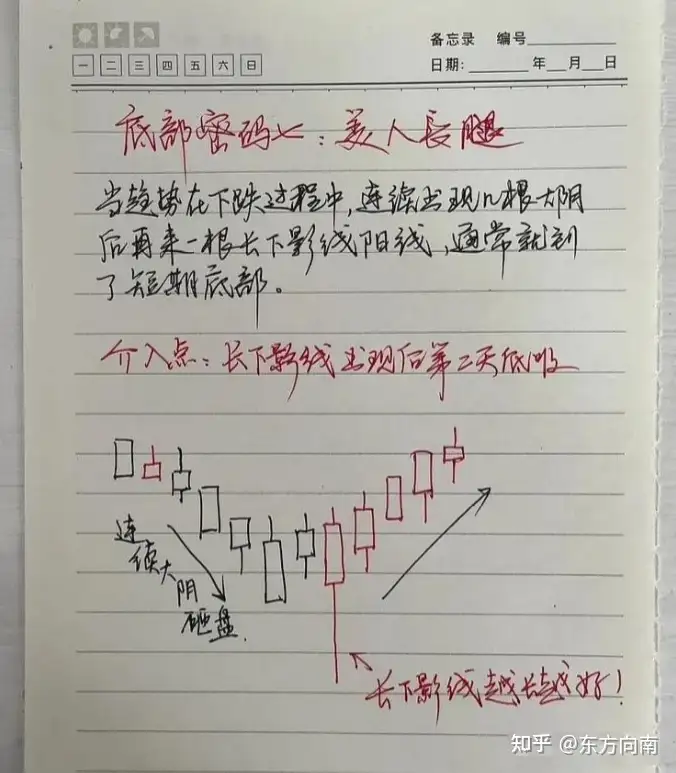 备忘录 编号
一 二 三 四 五 六 日
日期: 年 月 日
底部密码七:美人长腿
当趋势在下跌过程中,连续出现几根大阴
后再来一根长下影线阳线,通常就到
了短期底部。
介入点:长下影线出现后第二天低吸
连续大阴
砸盘.
长下影线越长越好!
知乎 @东方向南